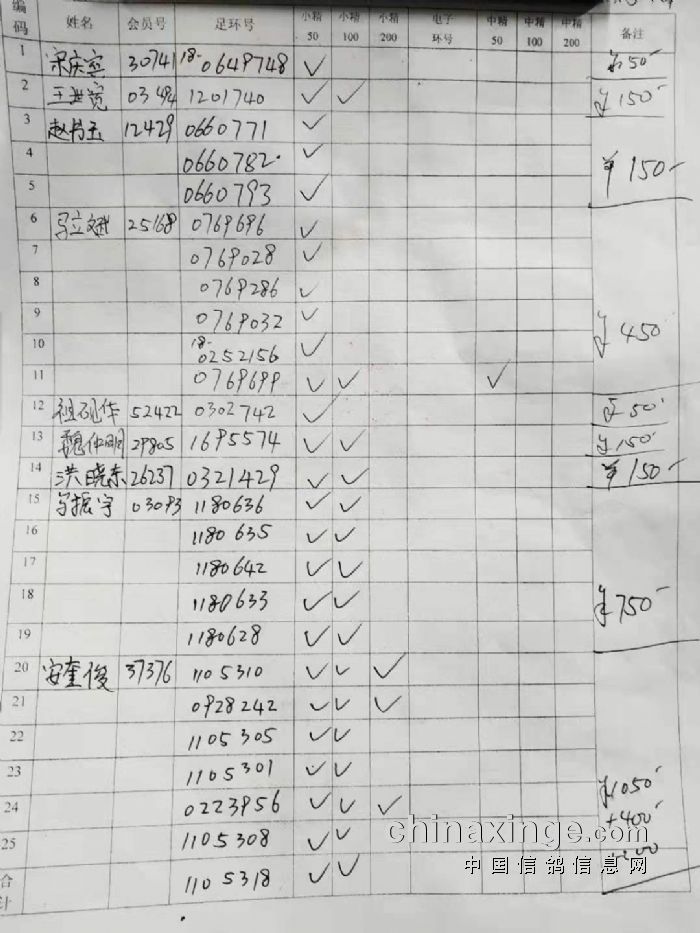 编码 姓名 会员号 足环号 小精50 小精100 小精200 电子环号 中精50 中精100 中精200 备注
1 宋庆 30741 18-0649748 ✓ ¥50-
2 王 03494 1201740 ✓ ✓ ¥150-
3 赵 12429 0660771 ✓
4 0660782 ✓ ¥150-
5 0660793 ✓
6 马立斌 25168 0769696 ✓
7 0769028 ✓
8 0769286 ✓
9 0769032 ✓ ¥450-
10 18-0252156 ✓
11 0769699 ✓ ✓ ✓
12 祖 作 52422 0302742 ✓ ¥50-
13 魏仲明 29805 1695574 ✓ ✓ ¥150-
14 洪晓东 26237 0321429 ✓ ✓ ¥150-
15 马振宇 03093 1180636 ✓ ✓
16 1180635 ✓ ✓
17 1180642 ✓ ✓
18 1180633 ✓ ✓ ¥750-
19 1180628 ✓ ✓
20 安奎俊 37376 1105310 ✓ ✓ ✓
21 0928242 ✓ ✓ ✓
22 1105305 ✓ ✓
23 1105301 ✓ ✓ ¥1050-
24 0223956 ✓ ✓ ✓ +400-
25 1105308 ✓ ✓
合计 1105318 ✓ ✓
chinaxinge.com
中国信鸽信息网